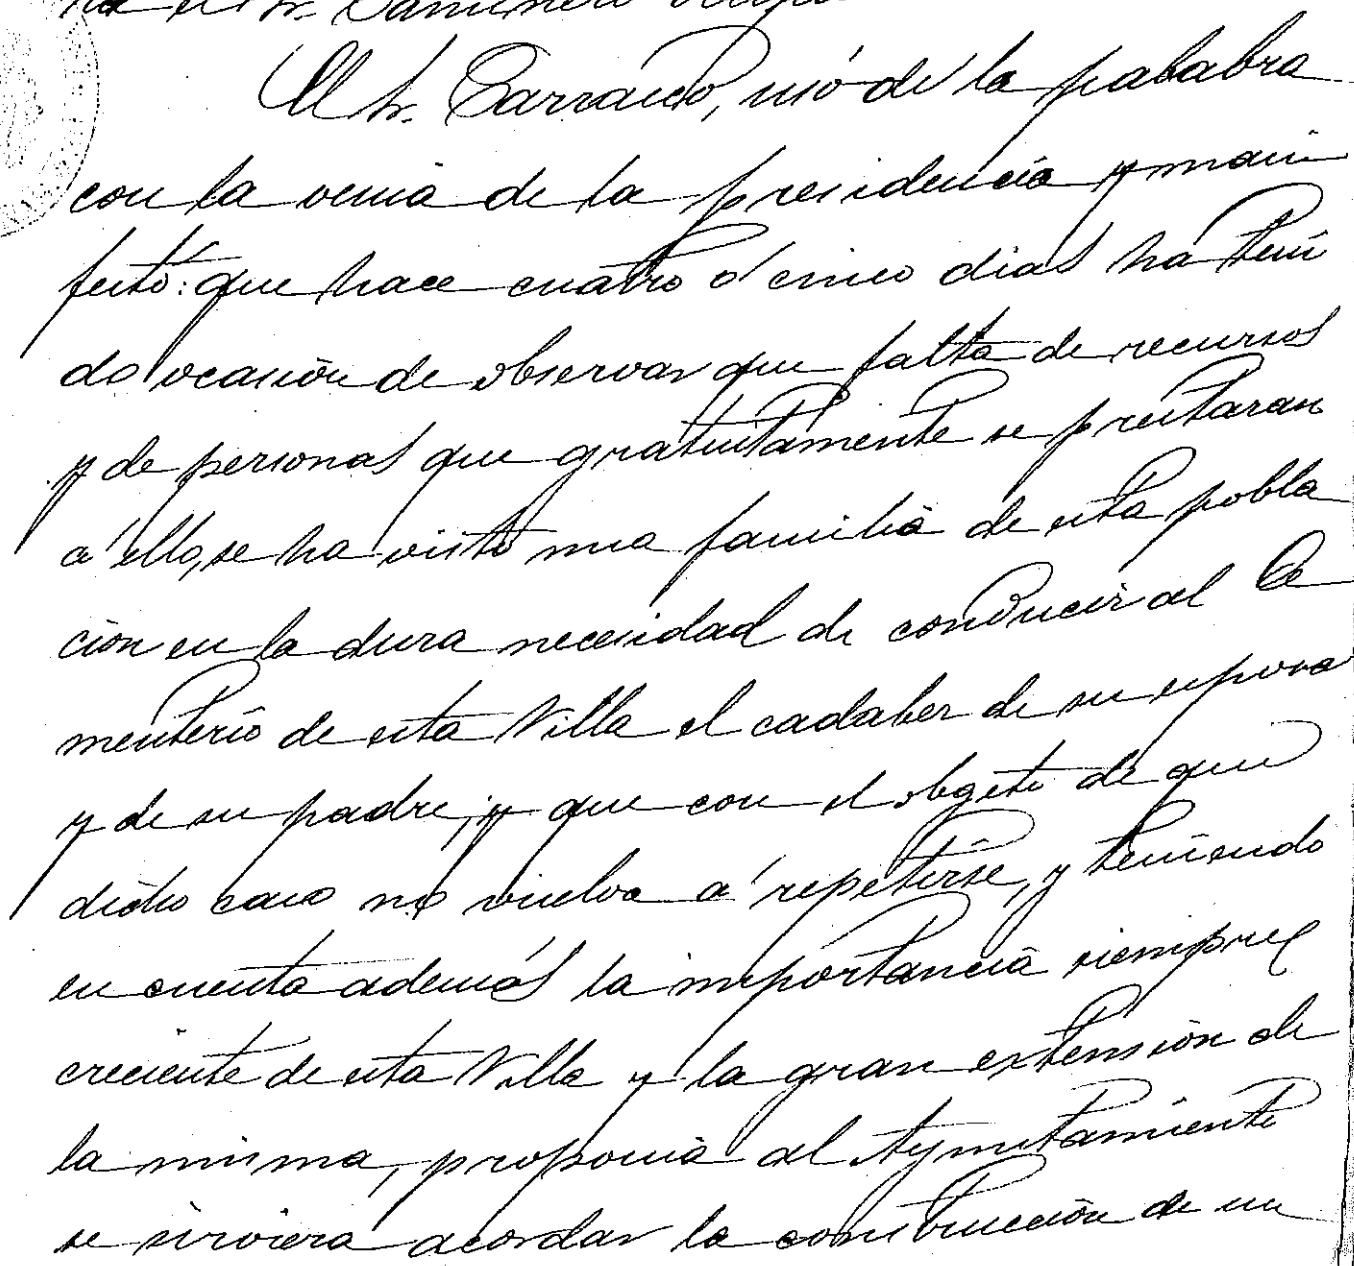 el Sr.
El Sr. Parrado, usó de la palabra
con la venia de la presidencia y mani
festó: que hace cuatro ó cinco dias ha teni
do ocasión de observar que falta de recursos
y de personas que gratuitamente se prestaran
a ello, se ha visto una familia de esta pobla
ción en la dura necesidad de conducir al Ce
menterio de esta Villa el cadaber de su esposa
y de su padre, y que con el obgeto de que
dicho caso no vuelva á repetirse, y teniendo
en cuenta además la importancia siempre
creciente de esta Villa y la gran extensión de
la misma, proponia al Ayuntamiento
se sirviera acordar la construcción de un